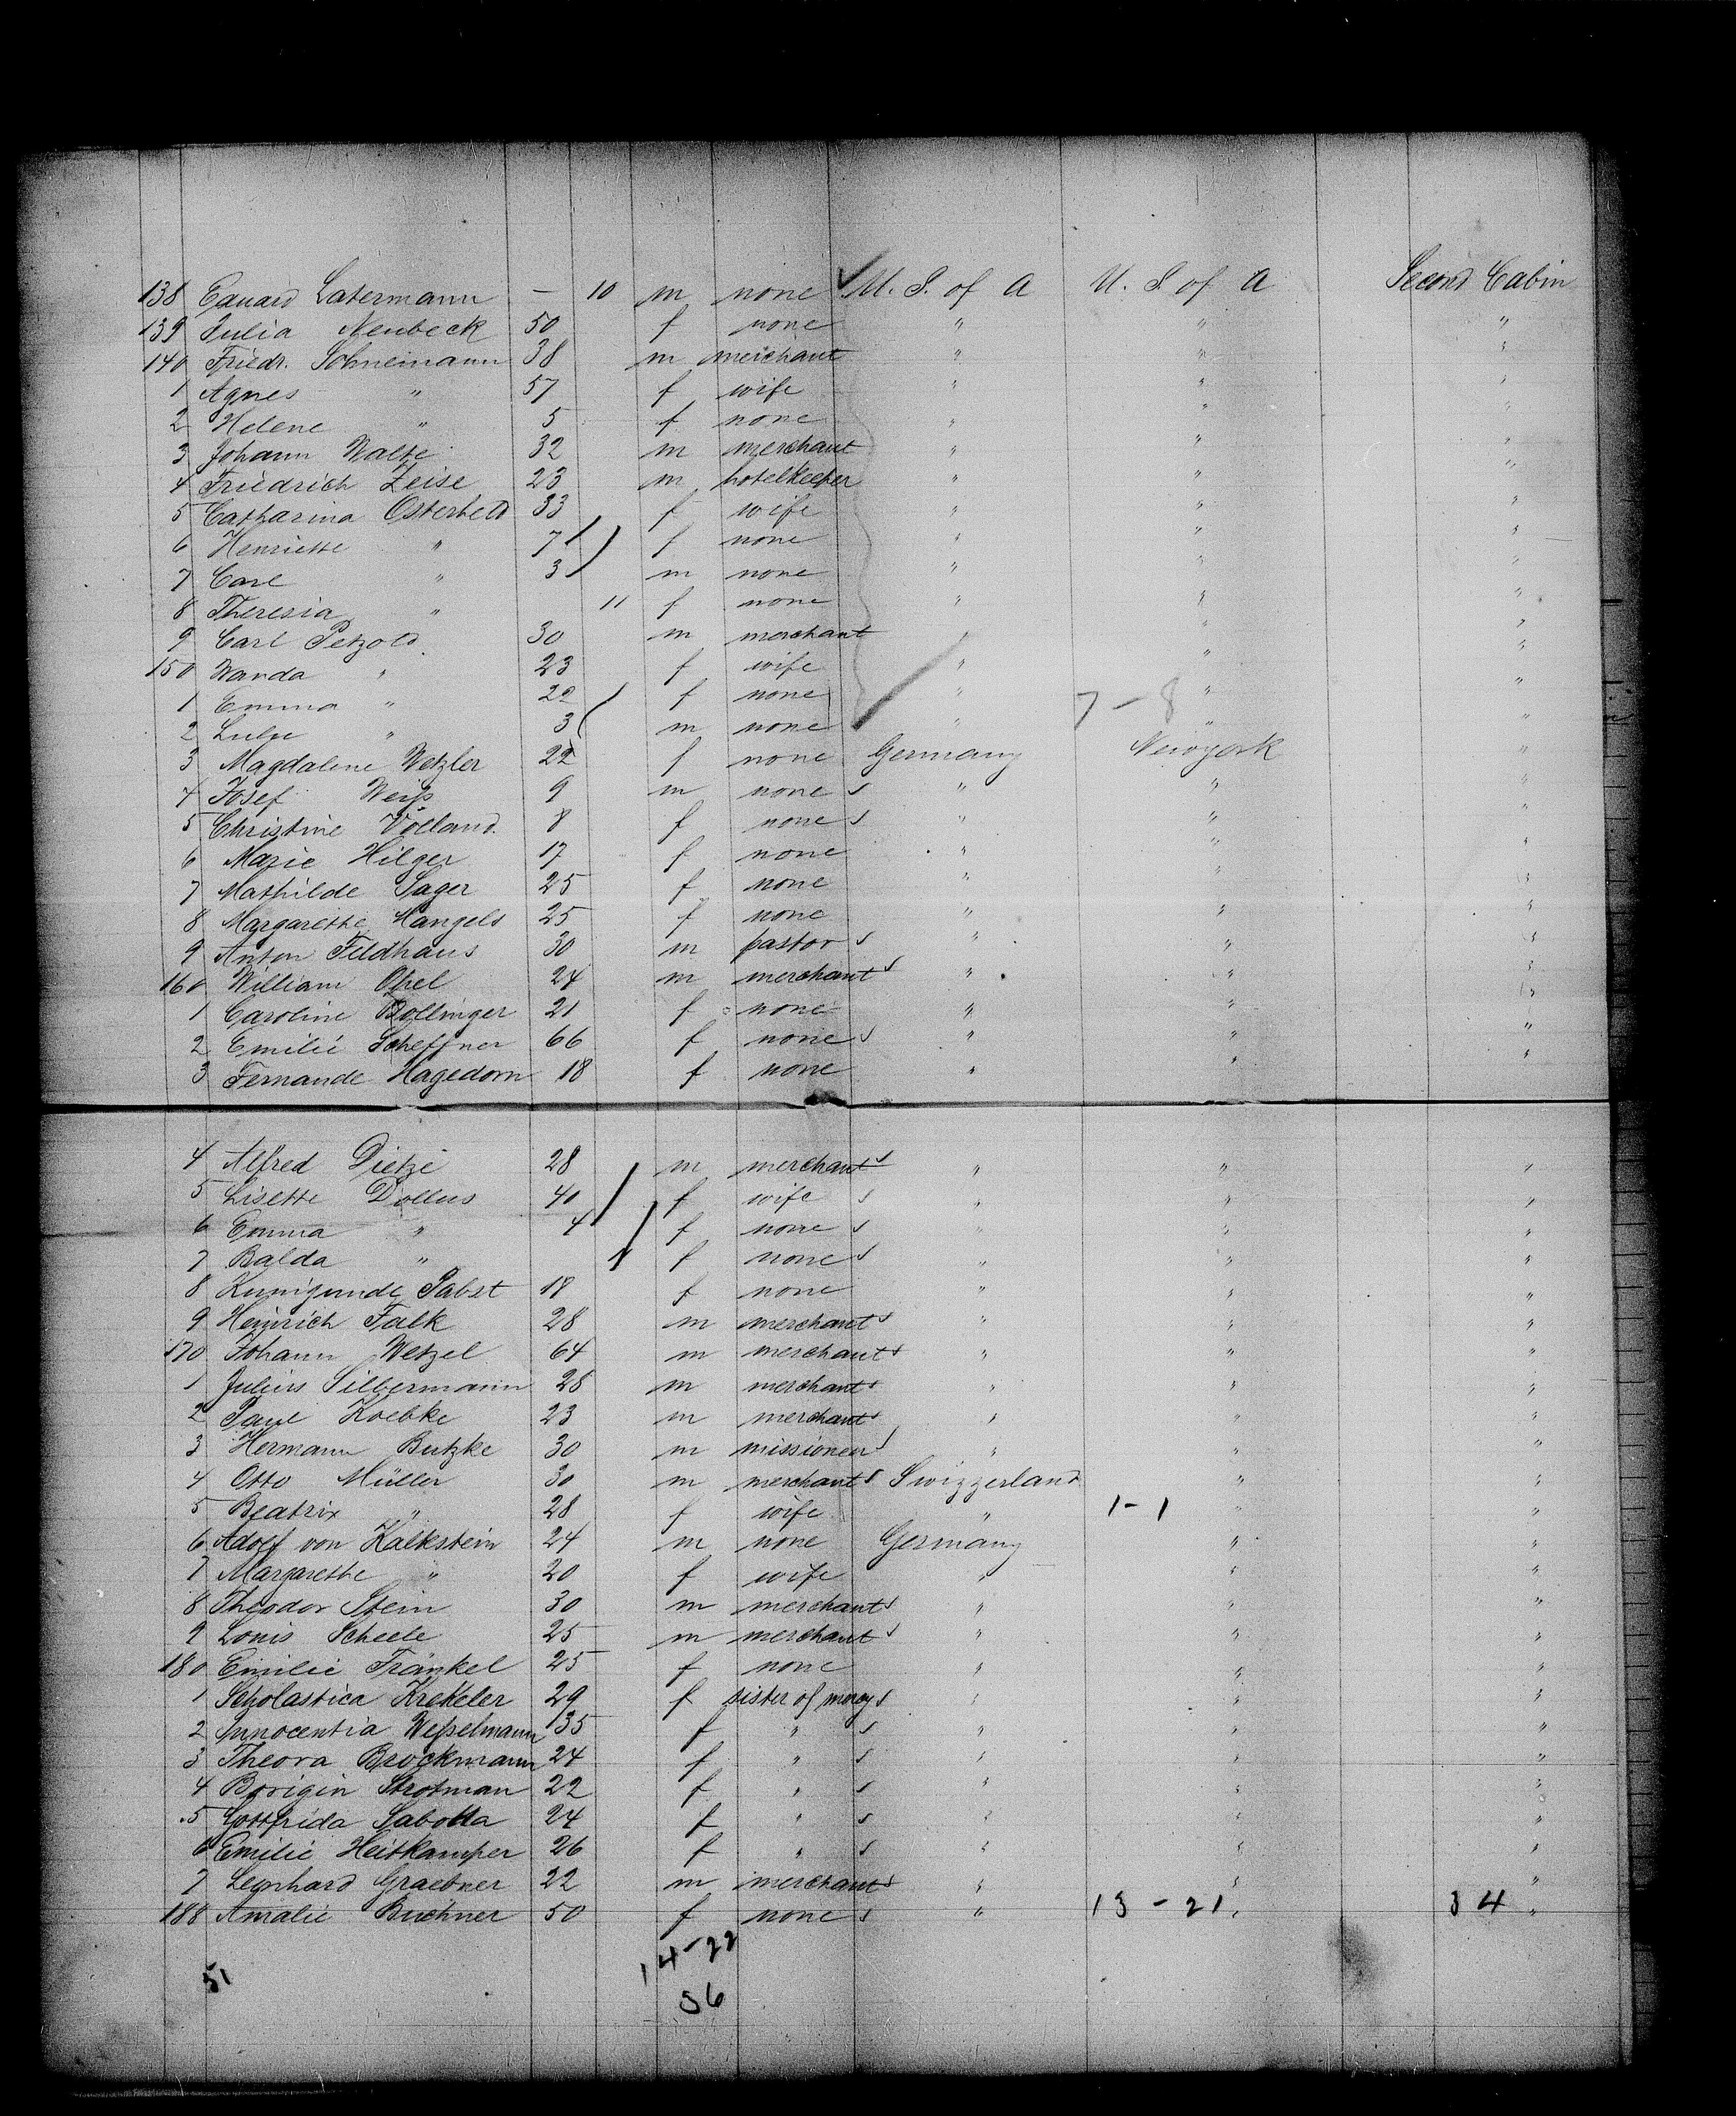 138 Eduard Latermann — 10 m none M. S. of A U. S. of A Second Cabin
139 Julia Neubeck 50 f none " " "
140 Friedr. Schneimann 38 m merchant " " "
1 Agnes " 57 f wife " " "
2 Helene " 5 f none " " "
3 Johann Walte 32 m merchant " " "
4 Friedrich Zeise 23 m hotelkeeper " " "
5 Catharina Osterheld 33 f wife " " "
6 Henriette " 7 f none " " "
7 Carl " 3 m none " " "
8 Theresia " 11 f none " " "
9 Carl Petzold 30 m merchant " " "
150 Wanda " 23 f wife " " "
1 Emma " 22 f none " 7-8 " "
2 " 3 m none " " "
3 Magdalene Wetzler 22 f none Germany Newyork "
4 Josef Weiß 9 m none s " " "
5 Christine Volland 8 f none s " " "
6 Marie Hilger 17 f none " " "
7 Mathilde Sager 25 f none " " "
8 Margarethe Mangels 25 f none " " "
9 Anton Feldhaus 30 m pastor s " " "
160 William Opel 24 m merchant s " " "
1 Caroline Bollinger 21 f none " " "
2 Emilie Scheffner 66 f none s " " "
3 Fernande Hagedorn 18 f none " " "
4 Alfred Dietze 28 m merchant s " " "
5 Lisette Dollus 40 f wife s " " "
6 Emma " 4 f none s " " "
7 Balda " 11 f none s " " "
8 Kunigunde Pabst 18 f none " " "
9 Heinrich Falk 28 m merchant s " " "
170 Johann Wetzel 64 m merchant s " " "
1 Julius Silbermann 28 m merchant s " " "
2 Paul Koebke 23 m merchant s " " "
3 Hermann Butzke 30 m missionen s " " "
4 Otto Müller 30 m merchant s Swizzerland " "
5 Beatrix " 28 f wife " 1-1 " "
6 Adolf von Kalkstein 24 m none Germany " "
7 Margarethe " 20 f wife " " "
8 Theodor Stein 30 m merchant s " " "
9 Louis Scheele 25 m merchant s " " "
180 Emilie Fränkel 25 f none " " "
1 Scholastica Krekeler 29 f sister of mercy s " " "
2 Innocentia Weßelmann 35 f " s " " "
3 Theora Brockmann 24 f " s " " "
4 Borigin Strotman 22 f " s " " "
5 Gottfrida Sabotta 24 f " s " " "
6 Emilie Heitkamper 26 f " s " " "
7 Leonhard Graebner 22 m merchant s " " "
188 Amalie Buchner 50 f none s " 13-21 " 34 "
14-22
51
36